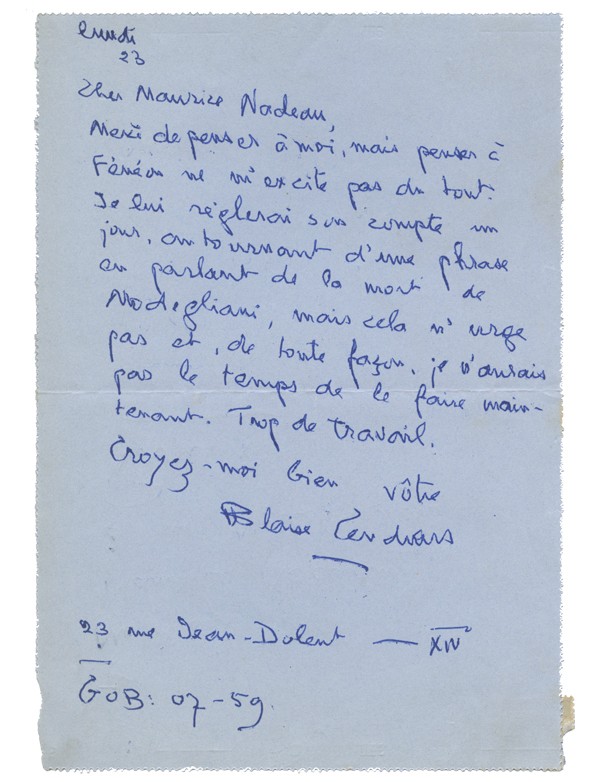 lundi
23
Cher Maurice Nadeau,
Merci de penser à moi, mais penser à
Fénéon ne m'excite pas du tout.
Je lui réglerai son compte un
jour, au tournant d'une phrase
en parlant de la mort de
Modegliani, mais cela n'urge
pas et, de toute façon, je n'aurais
pas le temps de le faire main-
tenant. Trop de travail.
Croyez-moi bien vôtre
Blaise Cendrars
23 rue Jean-Dolent — XIVe
GOB: 07-59.